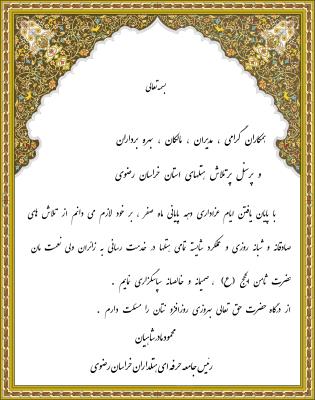 بسمه تعالی
همکاران گرامی ، مدیران ، مالکان ، بهره برداران
و پرسنل پرتلاش هتلهای استان خراسان رضوی
با پایان یافتن ایام عزاداری دهه پایانی ماه صفر ، بر خود لازم می دانم از تلاش های
صادقانه و شبانه روزی و عملکرد شایسته تمامی هتلها در خدمت رسانی به زائران ولی نعمت مان
حضرت ثامن الحجج (ع) ، صمیمانه و خالصانه سپاسگزاری نمایم .
از درگاه حضرت حق تعالی بهروزی روزافزونتان را مسئلت دارم .
محمود مادرشاهیان
رئیس جامعه حرفه ای هتلداران خراسان رضوی